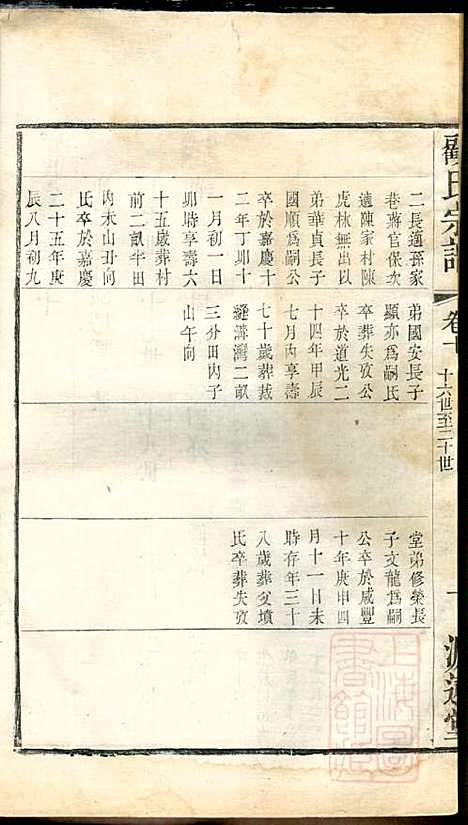 顧氏宗譜
卷十
十六世至二十世
二長適孫家
巷蔣官保次
適陳家村陳
虎林無出以
弟華貞長子
國順為嗣公
卒於嘉慶十
二年丁卯十
一月初一日
卯時享壽六
十五歲葬村
前二畝半田
內朩山丑向
氏卒於嘉慶
二十五年庚
辰八月初九
弟國安長子
顯亦為嗣氏
卒葬失攷公
卒於道光二
十四年甲辰
七月內享壽
七十歲葬裁
縫溝灣二畝
三分田內子
山午向
堂弟修榮長
子文龍為嗣
公卒於咸豐
十年庚申四
月十一日未
時存年三十
八歲葬父墳
氏卒葬失攷
上海圖書館藏